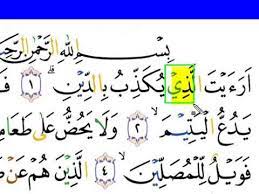 بِسْمِ اللّٰهِ الرَّحْمٰنِ الرَّحِيْمِ
اَرَءَيْتَ الَّذِيْ يُكَذِّبُ بِالدِّيْنِ ۝١
يَدُعُّ الْيَتِيْمَ ۙ ۝٢ وَلَا يَحُضُّ عَلٰى طَعَامِ
فَوَيْلٌ لِّلْمُصَلِّيْنَ ۙ ۝٤ الَّذِيْنَ هُمْ عَنْ